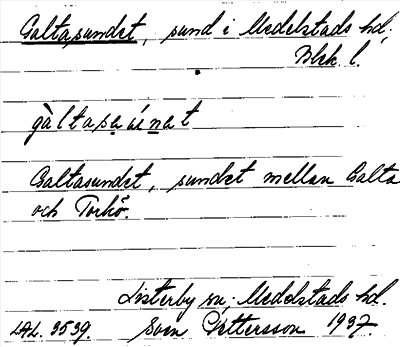 Galtasundet, sund i Medelstads hd,
Blek. l.
gàltasu̱ńe̱t
Galtasundet, sundet mellan Galta
och Torkö.
Listerby sn, Medelstads hd.
LAL. 3539. Sven Pettersson 1937.